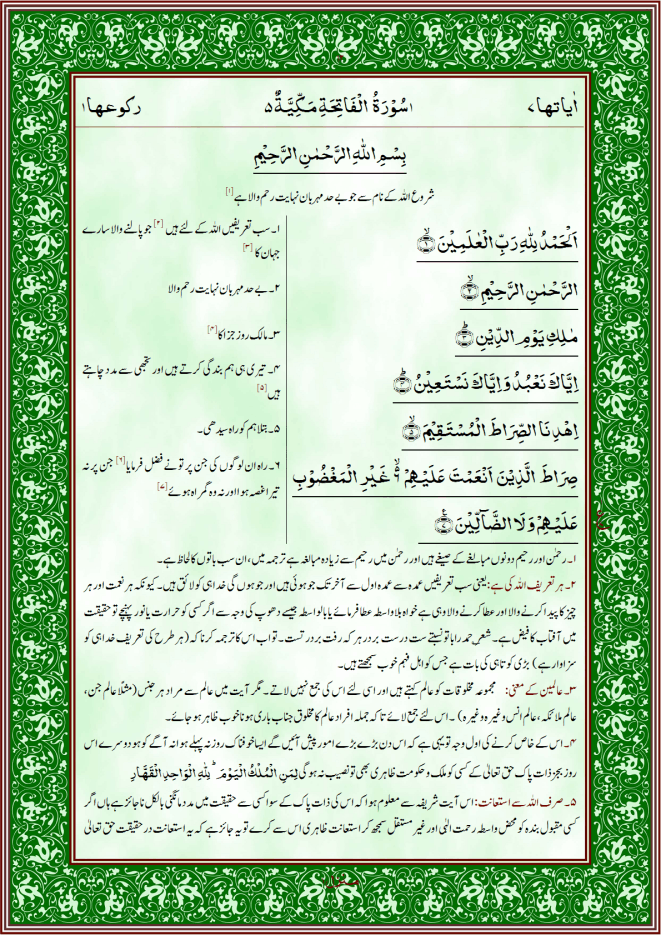 اٰیاتها ۷ ۱سُوْرَةُ الْفَاتِحَةِ مَكِّيَّةٌ ۵ رکوعها ۱
بِسْمِ اللهِ الرَّحْمٰنِ الرَّحِيْمِ
شروع اللہ کے نام سے جو بے حد مہربان نہایت رحم والا ہے [۱]
اَلْحَمْدُ لِلّٰهِ رَبِّ الْعٰلَمِيْنَ ۙ﴿۱﴾
۱۔ سب تعریفیں اللہ کے لئے ہیں [۲] جو پالنے والا سارے
جہان کا [۳]
الرَّحْمٰنِ الرَّحِيْمِ ۙ﴿۲﴾
۲۔ بے حد مہربان نہایت رحم والا
مٰلِكِ يَوْمِ الدِّيْنِ ؕ﴿۳﴾
۳۔ مالک روز جزا کا [۴]
اِيَّاكَ نَعْبُدُ وَ اِيَّاكَ نَسْتَعِيْنُ ؕ﴿۴﴾
۴۔ تیری ہی ہم بندگی کرتے ہیں اور تجھی سے مدد چاہتے
ہیں [۵]
اِهْدِنَا الصِّرَاطَ الْمُسْتَقِيْمَ ۙ﴿۵﴾
۵۔ بتلا ہم کو راہ سیدھی۔
صِرَاطَ الَّذِيْنَ اَنْعَمْتَ عَلَيْهِمْ ۙ۬ۦ غَيْرِ الْمَغْضُوْبِ
عَلَيْهِمْ وَلَا الضَّآلِّيْنَ ﴿۷﴾
۶۔ راہ ان لوگوں کی جن پر تو نے فضل فرمایا [۶] جن پر نہ
تیرا غصہ ہوا اور نہ وہ گمراہ ہوئے [۷]
۱۔ رحمٰن اور رحیم دونوں مبالغے کے صیغے ہیں اور رحمٰن میں رحیم سے زیادہ مبالغہ ہے ترجمہ میں، ان سب باتوں کا لحاظ ہے۔
۲۔ ہر تعریف اللہ کی ہے: یعنی سب تعریفیں عمدہ سے عمدہ اول سے آخر تک جو ہوئی ہیں اور جو ہوں گی خدا ہی کو لائق ہیں۔ کیونکہ ہر نعمت اور ہر
چیز کا پیدا کرنے والا اور عطا کرنے والا وہی ہے خواہ بلا واسطہ عطا فرمائے یا بالواسطہ جیسے دھوپ کی وجہ سے اگر کسی کو حرارت یا نور پہنچے تو حقیقت
میں آفتاب کا فیض ہے۔ شعر حمد را با تو نسبتے ست درست بر در ہر کہ رفت بر در تست۔ تو اب اس کا ترجمہ کرنا کہ (ہر طرح کی تعریف خدا ہی کو
سزاوار ہے) بڑی کوتاہی کی بات ہے جس کو اہل فہم خوب سمجھتے ہیں۔
۳۔ عالمین کے معنی: مجموعہ مخلوقات کو عالم کہتے ہیں اور اسی لئے اس کی جمع نہیں لاتے۔ مگر آیت میں عالم سے مراد ہر جنس (مثلًا عالم جن،
عالم ملائکہ، عالم انس وغیرہ وغیرہ) ۔ اس لئے جمع لائے تاکہ جملہ افراد عالم کا مخلوق جناب باری ہونا خوب ظاہر ہو جائے۔
۴۔ اس کے خاص کرنے کی اول وجہ تو یہی ہے کہ اس دن بڑے بڑے امور پیش آئیں گے ایسا خوفناک روز نہ پہلے ہوا نہ آگے کو ہو دوسرے اس
روز بجز ذات پاک حق تعالیٰ کے کسی کو ملک و حکومت ظاہری بھی تو نصیب نہ ہوگی لِمَنِ الْمُلْكُ الْيَوْمَ ؕ لِلّٰهِ الْوَاحِدِ الْقَهَّارِ
۵۔ صرف اللہ سے استعانت: اس آیت شریفہ سے معلوم ہوا کہ اس کی ذات پاک کے سوا کسی سے حقیقت میں مدد مانگنی بالکل ناجائز ہے ہاں اگر
کسی مقبول بندہ کو محض واسطہ رحمت الٰہی اور غیر مستقل سمجھ کر استعانت ظاہری اس سے کرے تو یہ جائز ہے کہ یہ استعانت درحقیقت حق تعالیٰ